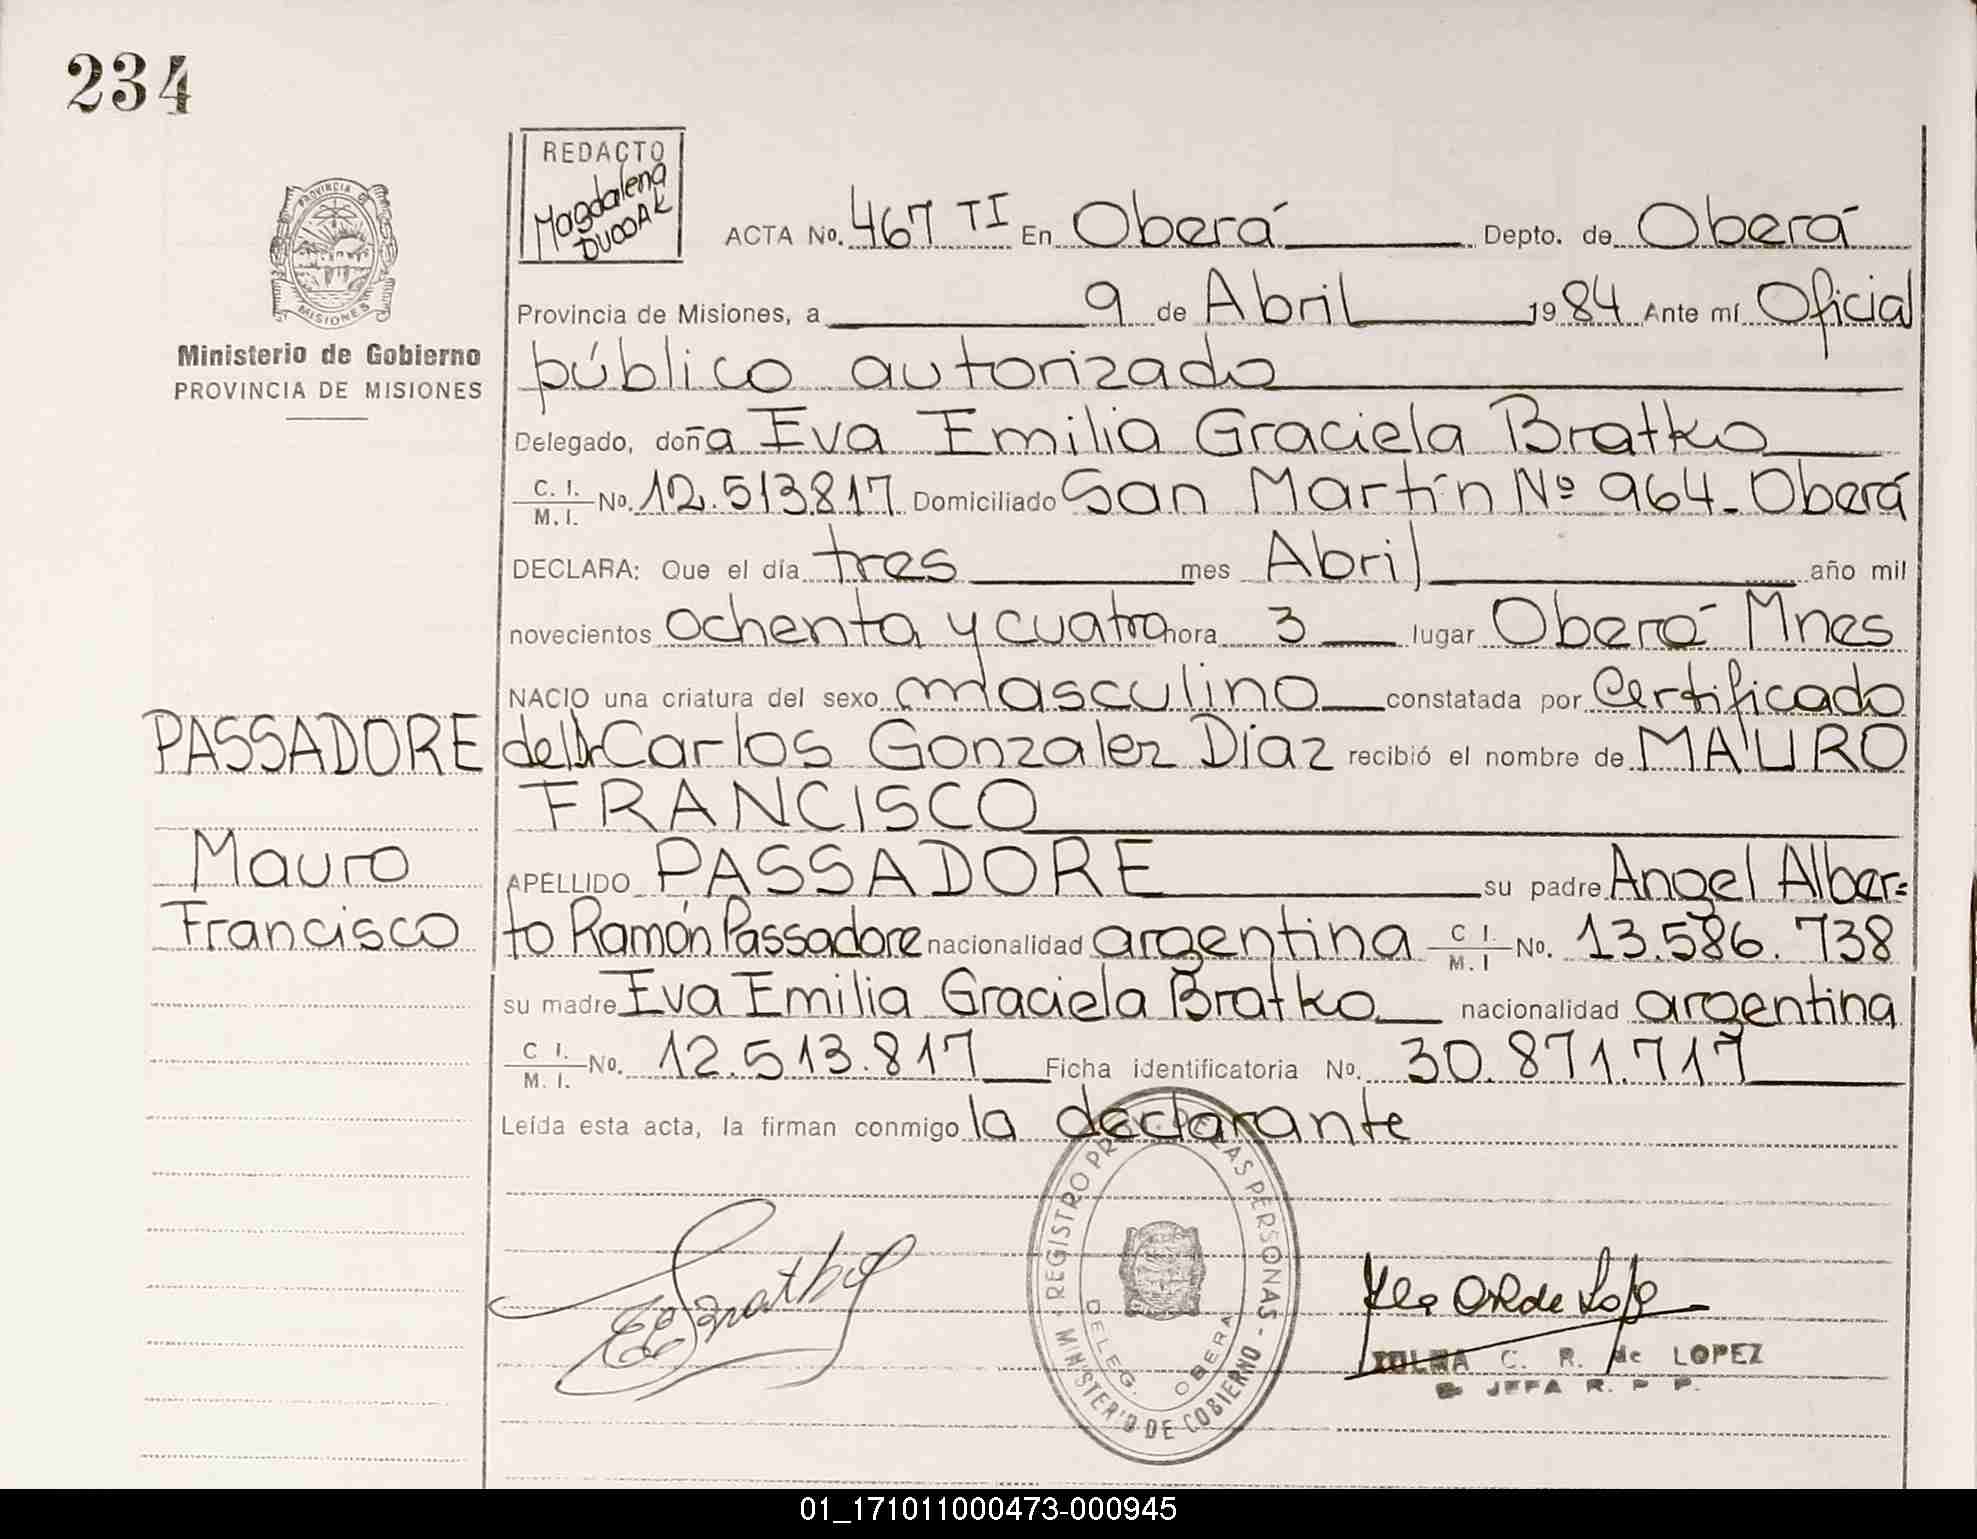 234
REDACTO
Magdalena
DUDDAK
PROVINCIA DE
MISIONES
Ministerio de Gobierno
PROVINCIA DE MISIONES
ACTA No. 467 TI En Oberá Depto. de Oberá
Provincia de Misiones, a 9 de Abril 1984 Ante mí Oficial
público autorizado
Delegado, doña Eva Emilia Graciela Bratko
C. I. / M. I. No. 12.513.817 Domiciliado San Martín Nº 964 - Oberá
DECLARA: Que el día tres mes Abril año mil
novecientos ochenta y cuatro hora 3 lugar Oberá Mnes
NACIO una criatura del sexo masculino constatada por Certificado
del Dr Carlos Gonzalez Díaz recibió el nombre de MAURO
FRANCISCO
APELLIDO PASSADORE su padre Angel Alber=
to Ramón Passadore nacionalidad argentina C I. / M. I No. 13.586.738
su madre Eva Emilia Graciela Bratko nacionalidad argentina
C I. / M. I. No. 12.513.817 Ficha identificatoria No. 30.871.717
Leída esta acta, la firman conmigo la declarante
PASSADORE
Mauro
Francisco
REGISTRO PROV. DE LAS PERSONAS - MINISTERIO DE GOBIERNO -
DELEG. OBERA
EEGBratko
C. R. de LOPEZ
JEFA R. P. P.
01_171011000473-000945